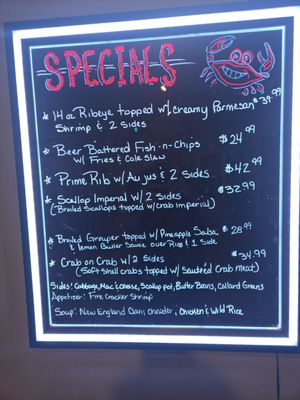 SPECIALS
* 14 oz Ribeye topped w/ Creamy Parmesan $39.99
Shrimp & 2 Sides
* Beer Battered Fish-n-Chips $24.99
w/ Fries & Cole Slaw
* Prime Rib w/ Au jus & 2 Sides $42.99
* Scallop Imperial w/ 2 Sides $32.99
(Broiled Scallops topped w/ Crab Imperial)
* Broiled Grouper topped w/ Pineapple Salsa $28.99
& lemon Butter Sauce over Rice & 1 Side
* Crab on Crab w/ 2 Sides $34.99
(Soft shell crabs topped w/ Sautéed Crab meat)
Sides: Cabbage, Mac & cheese, Scallop pot, Butter Beans, Collard Greens
Appetizer: Fire Cracker Shrimp
Soup: New England Clam chowder, Chicken & Wild Rice